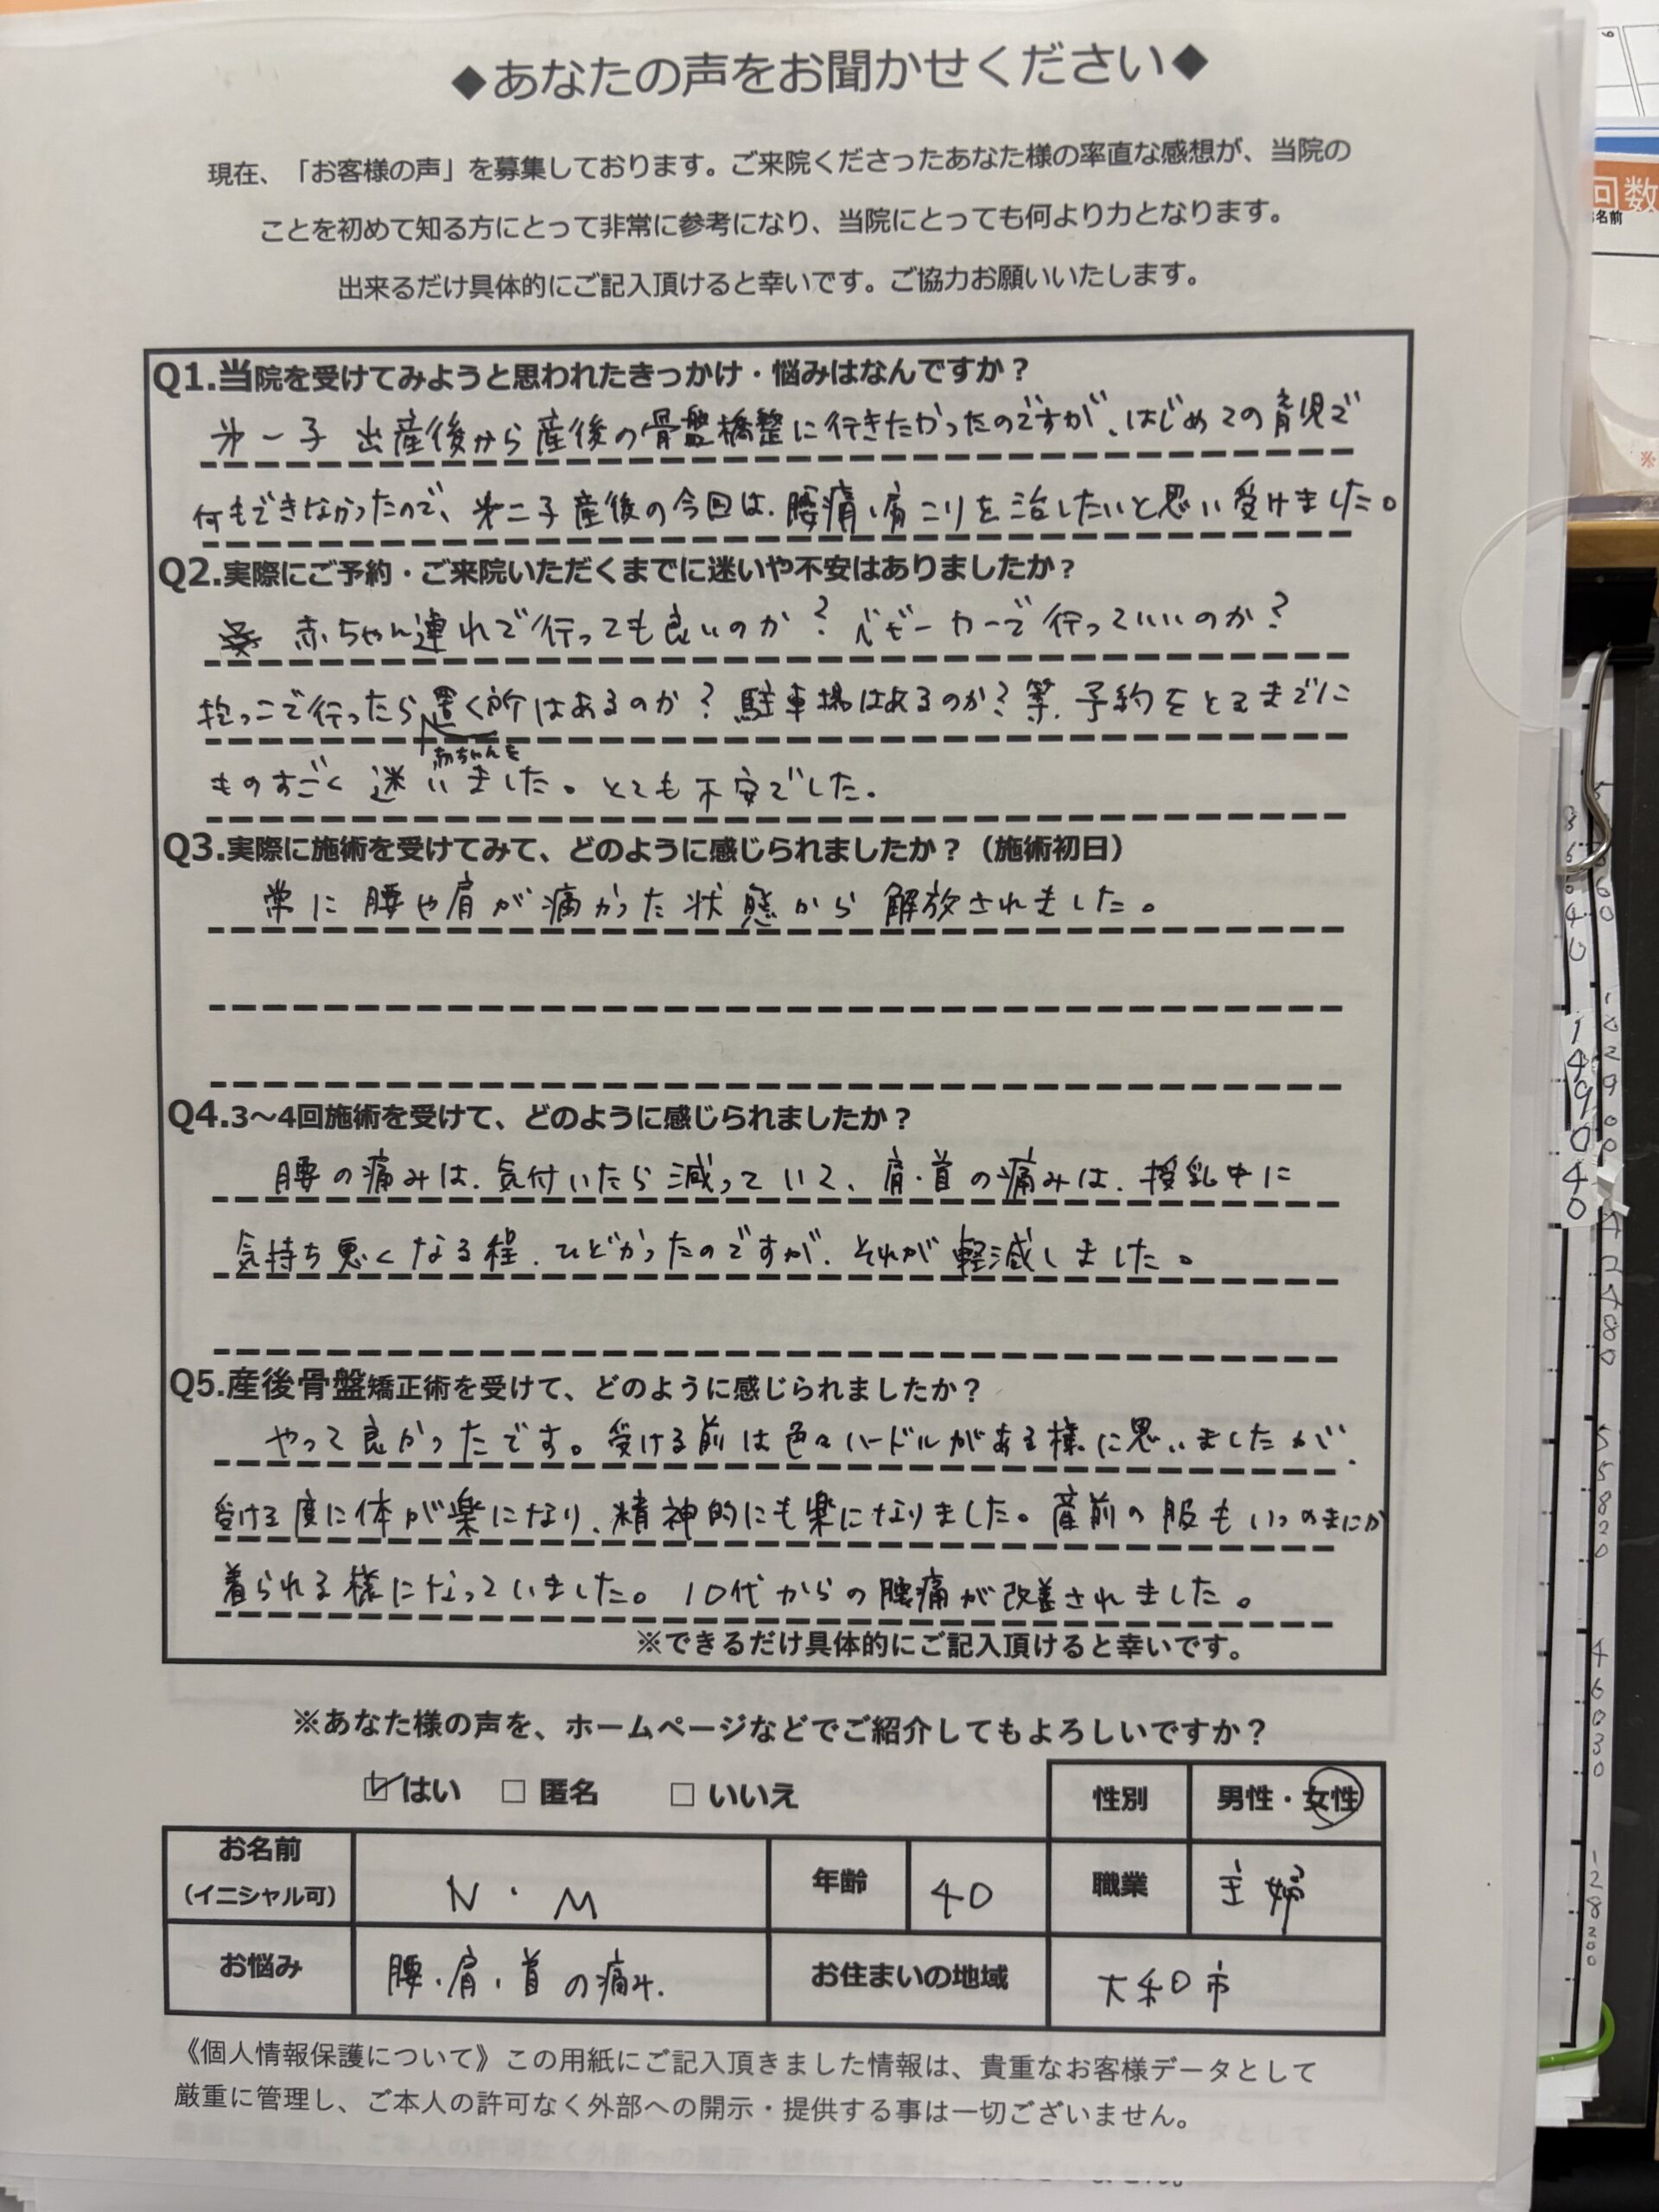 ◆あなたの声をお聞かせください◆
現在、「お客様の声」を募集しております。ご来院くださったあなた様の率直な感想が、当院の
ことを初めて知る方にとって非常に参考になり、当院にとっても何より力となります。
出来るだけ具体的にご記入頂けると幸いです。ご協力お願いいたします。
Q1.当院を受けてみようと思われたきっかけ・悩みはなんですか？
第一子 出産後から産後の骨盤橋整に行きたかったのですが、はじめての育児で
何もできなかったので、第二子産後の今回は、腰痛、肩こりを治したいと思い受けました。
Q2.実際にご予約・ご来院いただくまでに迷いや不安はありましたか？
赤ちゃん連れで行っても良いのか？ベビーカーで行っていいのか？
抱っこで行ったら置く所はあるのか？駐車場はあるのか？等、予約をとるまでに
赤ちゃんを
ものすごく迷いました。とても不安でした。
Q3.実際に施術を受けてみて、どのように感じられましたか？（施術初日）
常に腰や肩が痛かった状態から解放されました。
Q4.3～4回施術を受けて、どのように感じられましたか？
腰の痛みは、気付いたら減っていて、肩・首の痛みは、授乳中に
気持ち悪くなる程、ひどかったのですが、それが軽減しました。
Q5.産後骨盤矯正術を受けて、どのように感じられましたか？
やって良かったです。受ける前は色々ハードルがある様に思いましたが、
受ける度に体が楽になり、精神的にも楽になりました。産前の服もいつのまにか
着られる様になっていました。10代からの腰痛が改善されました。
※できるだけ具体的にご記入頂けると幸いです。
※あなた様の声を、ホームページなどでご紹介してもよろしいですか？
☑はい □ 匿名 □ いいえ
性別 男性・女性
お名前
（イニシャル可） N・M 年齢 40 職業 主婦
お悩み 腰、肩、首の痛み. お住まいの地域 大和市
《個人情報保護について》この用紙にご記入頂きました情報は、貴重なお客様データとして
厳重に管理し、ご本人の許可なく外部への開示・提供する事は一切ございません。
回数
名前